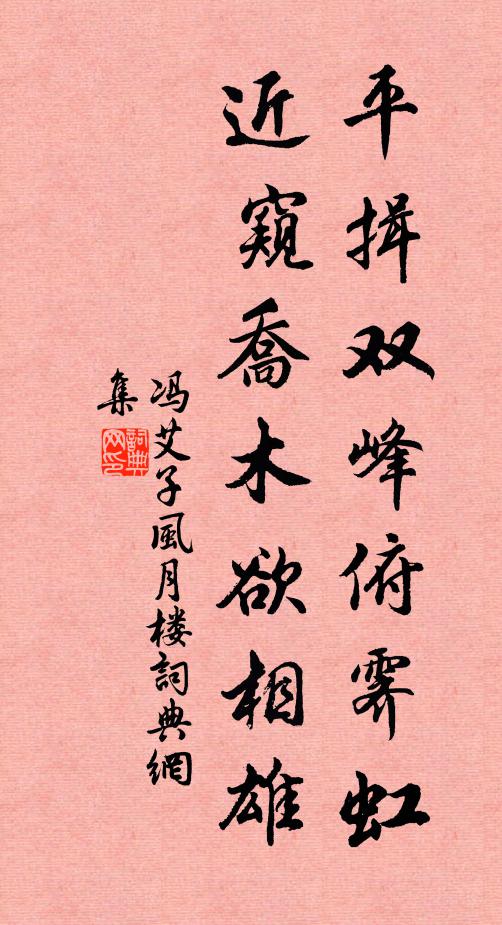 平揖双峰俯霁虹
近窺喬木欲相雄
冯艾子風月楼詞典網
集
詞典网印